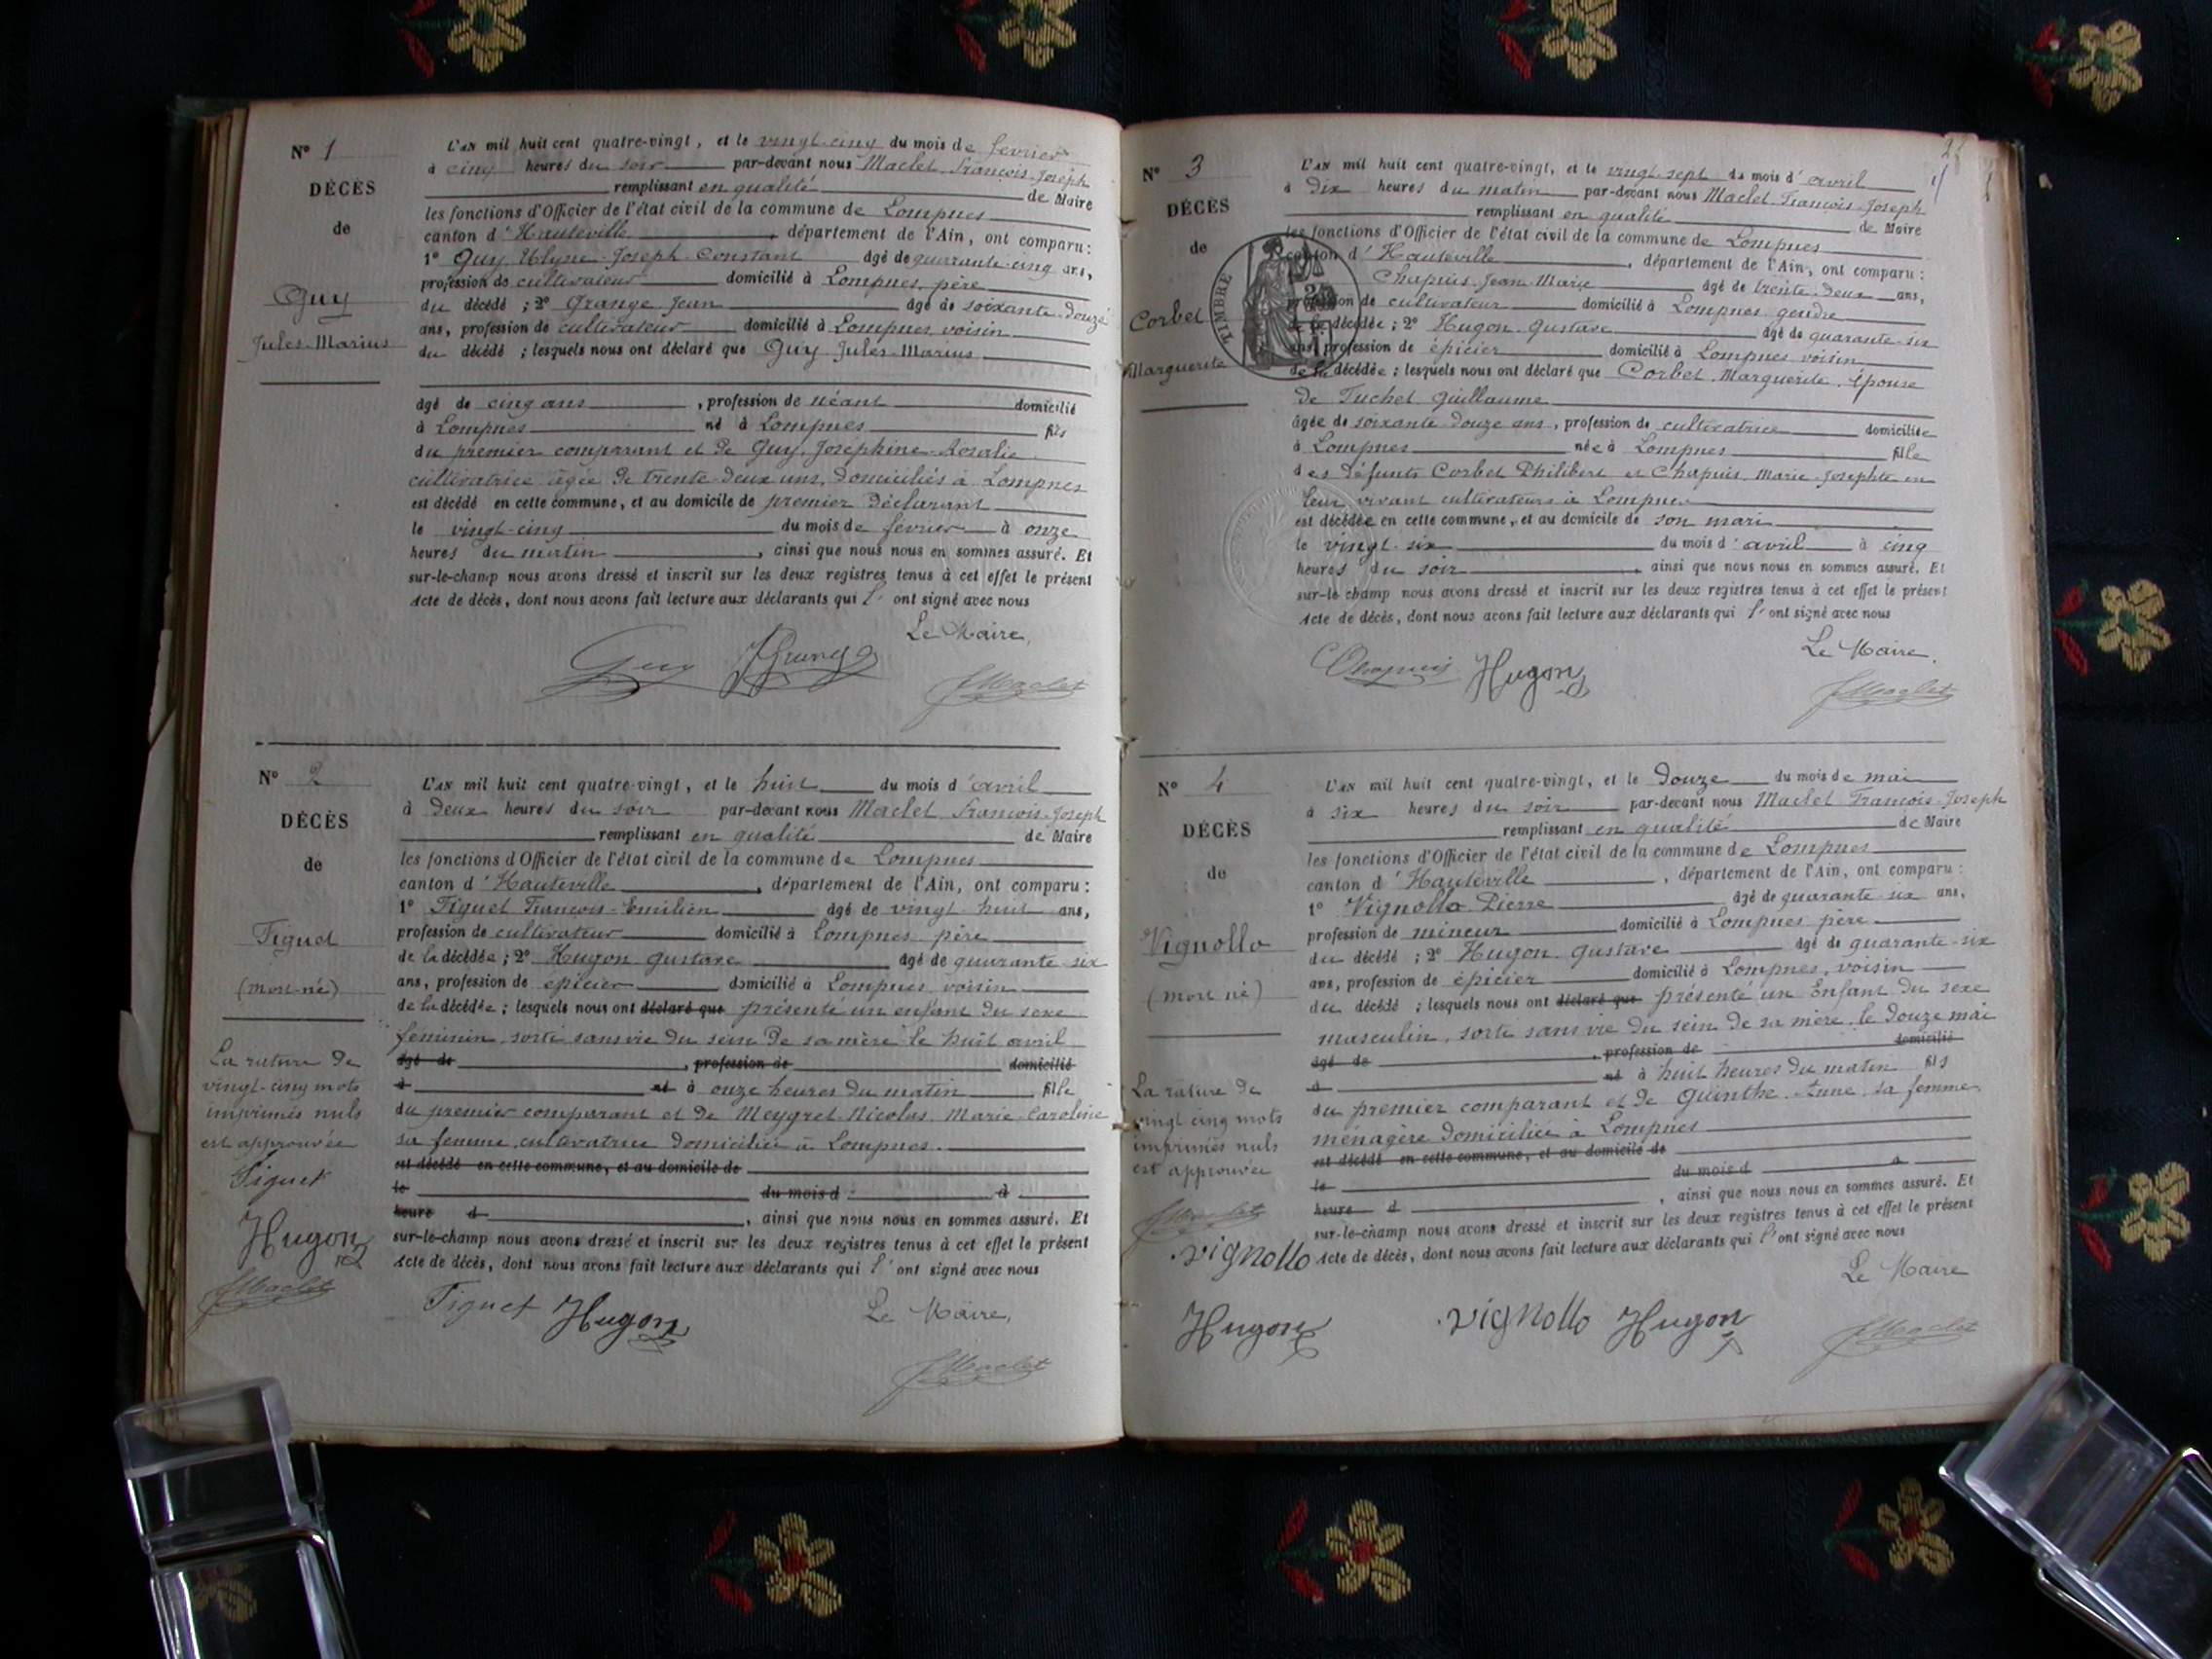 N° 1
DÉCÈS
de
Guy
Jules-Marius
L'AN mil huit cent quatre-vingt, et le vingt-cinq du mois de fevrier
à cinq heures du soir par-devant nous Maclet François-Joseph
remplissant en qualité de Maire
les fonctions d'Officier de l'état civil de la commune de Lompnes
canton d'Hauteville, département de l'Ain, ont comparu :
1° Guy Ulysse Joseph Constant âgé de quarante-cinq ans,
profession de cultivateur domicilié à Lompnes, père
du décédé ; 2° Grange Jean âgé de soixante-douze
ans, profession de cultivateur domicilié à Lompnes, voisin
du décédé ; lesquels nous ont déclaré que Guy Jules-Marius
âgé de cinq ans, profession de néant domicilié
à Lompnes né à Lompnes fils
du premier comparant et de Guy, Joséphine-Rosalie
cultivatrice âgée de trente-deux ans, domiciliés à Lompnes
est décédé en cette commune, et au domicile de premier déclarant
le vingt-cinq du mois de fevrier à onze
heures du matin, ainsi que nous nous en sommes assuré. Et
sur-le-champ nous avons dressé et inscrit sur les deux registres tenus à cet effet le présent
Acte de décès, dont nous avons fait lecture aux déclarants qui l'ont signé avec nous
Le Maire,
Guy JGrange
JMaclet
N° 2
DÉCÈS
de
Figuet
(mort-né)
La rature de
vingt-cinq mots
imprimés nuls
est approuvée
Figuet
Hugon
JMaclet
L'AN mil huit cent quatre-vingt, et le huit du mois d'avril
à deux heures du soir par-devant nous Maclet François-Joseph
remplissant en qualité de Maire
les fonctions d'Officier de l'état civil de la commune de Lompnes
canton d'Hauteville, département de l'Ain, ont comparu :
1° Figuet François-Emilien âgé de vingt-huit ans,
profession de cultivateur domicilié à Lompnes père
de la décédée ; 2° Hugon Gustave âgé de quarante-six
ans, profession de épicier domicilié à Lompnes voisin
de la décédée ; lesquels nous ont déclaré que présenté un enfant du sexe
féminin, sorti sans vie du sein de sa mère le huit avril
âgé de , profession de domicilié
à né à onze heures du matin fille
du premier comparant et de Meygret Nicolas, Marie-Caroline
sa femme, cultivatrice domiciliée à Lompnes.
est décédé en cette commune, et au domicile de
le du mois d à
heure d , ainsi que nous nous en sommes assuré. Et
sur-le-champ nous avons dressé et inscrit sur les deux registres tenus à cet effet le présent
Acte de décès, dont nous avons fait lecture aux déclarants qui l'ont signé avec nous
Figuet Hugon Le Maire,
JMaclet
N° 3
DÉCÈS
de
Corbet
Marguerite
TIMBRE
L'AN mil huit cent quatre-vingt, et le vingt-sept du mois d'avril
à dix heures du matin par-devant nous Maclet François-Joseph
remplissant en qualité de Maire
les fonctions d'Officier de l'état civil de la commune de Lompnes
canton d'Hauteville, département de l'Ain, ont comparu :
Chapuis Jean Marie âgé de trente-deux ans,
profession de cultivateur domicilié à Lompnes gendre
de la décédée ; 2° Hugon Gustave âgé de quarante-six
ans, profession de épicier domicilié à Lompnes voisin
de la décédée ; lesquels nous ont déclaré que Corbet, Marguerite, épouse
de Tuchet Guillaume
âgée de soixante douze ans, profession de cultivatrice domiciliée
à Lompnes née à Lompnes fille
des défunts Corbet Philibert et Chapuis, Marie-Josephte en
leur vivant cultivateurs à Lompnes
est décédée en cette commune, et au domicile de son mari
le vingt-six du mois d'avril à cinq
heures du soir, ainsi que nous nous en sommes assuré. Et
sur-le-champ nous avons dressé et inscrit sur les deux registres tenus à cet effet le présent
Acte de décès, dont nous avons fait lecture aux déclarants qui l'ont signé avec nous
Le Maire,
Chapuis Hugon
JMaclet
N° 4
DÉCÈS
de
Vignollo
(mort né)
La rature de
vingt cinq mots
imprimés nuls
est approuvée
JMaclet
vignollo
Hugon
L'AN mil huit cent quatre-vingt, et le douze du mois de mai
à six heures du soir par-devant nous Maclet François-Joseph
remplissant en qualité de Maire
les fonctions d'Officier de l'état civil de la commune de Lompnes
canton d'Hauteville, département de l'Ain, ont comparu :
1° Vignollo Pierre âgé de quarante-six ans,
profession de mineur domicilié à Lompnes père
du décédé ; 2° Hugon Gustave âgé de quarante-six
ans, profession de épicier domicilié à Lompnes, voisin
du décédé ; lesquels nous ont déclaré que présenté un Enfant du sexe
masculin, sorti sans vie du sein de sa mère, le douze mai
âgé de , profession de domicilié
à né à huit heures du matin fils
du premier comparant et de Quinthe Anne, sa femme
ménagère domiciliée à Lompnes
est décédé en cette commune, et au domicile de
le du mois d à
heure d , ainsi que nous nous en sommes assuré. Et
sur-le-champ nous avons dressé et inscrit sur les deux registres tenus à cet effet le présent
Acte de décès, dont nous avons fait lecture aux déclarants qui l'ont signé avec nous
Le Maire
vignollo Hugon
JMaclet